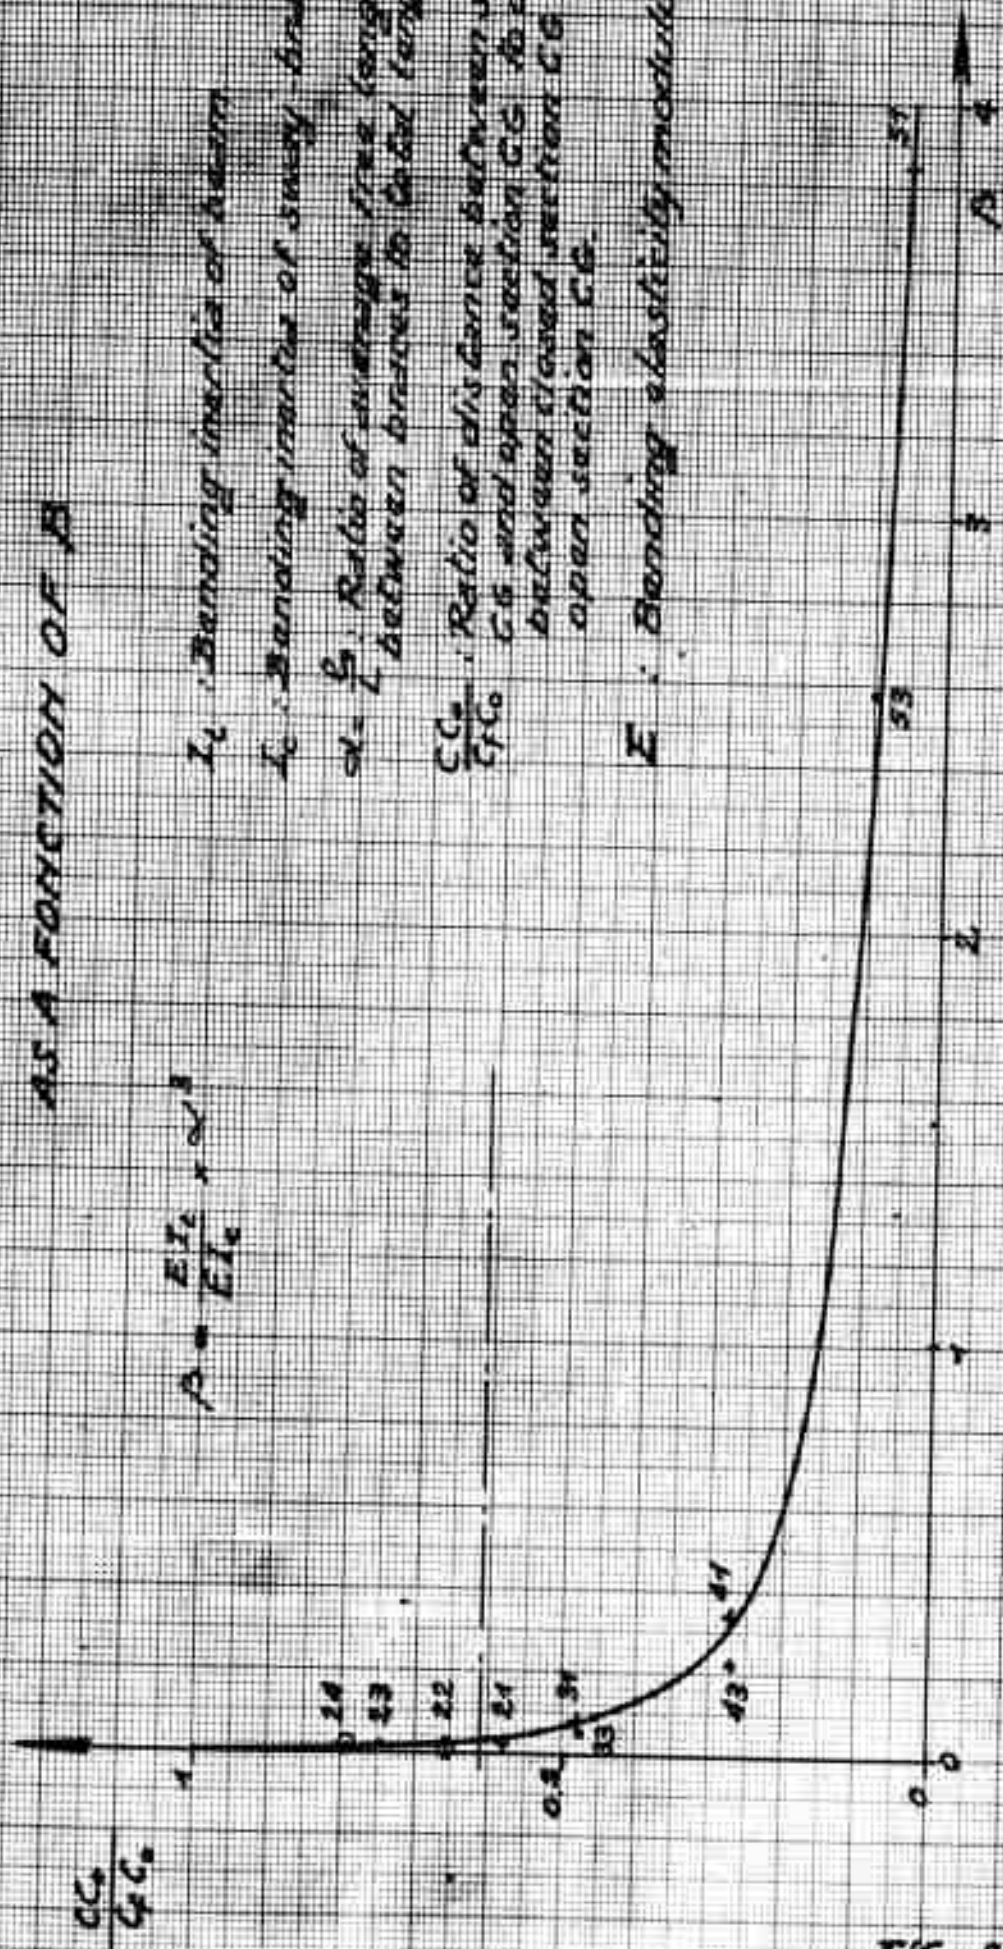 AS A FONCTION OF β
β = EI_L / EI_c × α³
I_L : Bending inertia of beam
I_c : Bending inertia of sway
α = / L : Ratio of average free
between braces to total
CC₀ / C_fC₀ : Ratio of distance between
CG and open section CG to
between closed section CG
open section CG.
E : Bending elasticity
CC₀ / C_fC₀
1
0
0
1
2
3
4
β
24
23
22
21
31
33
41
43
53
51